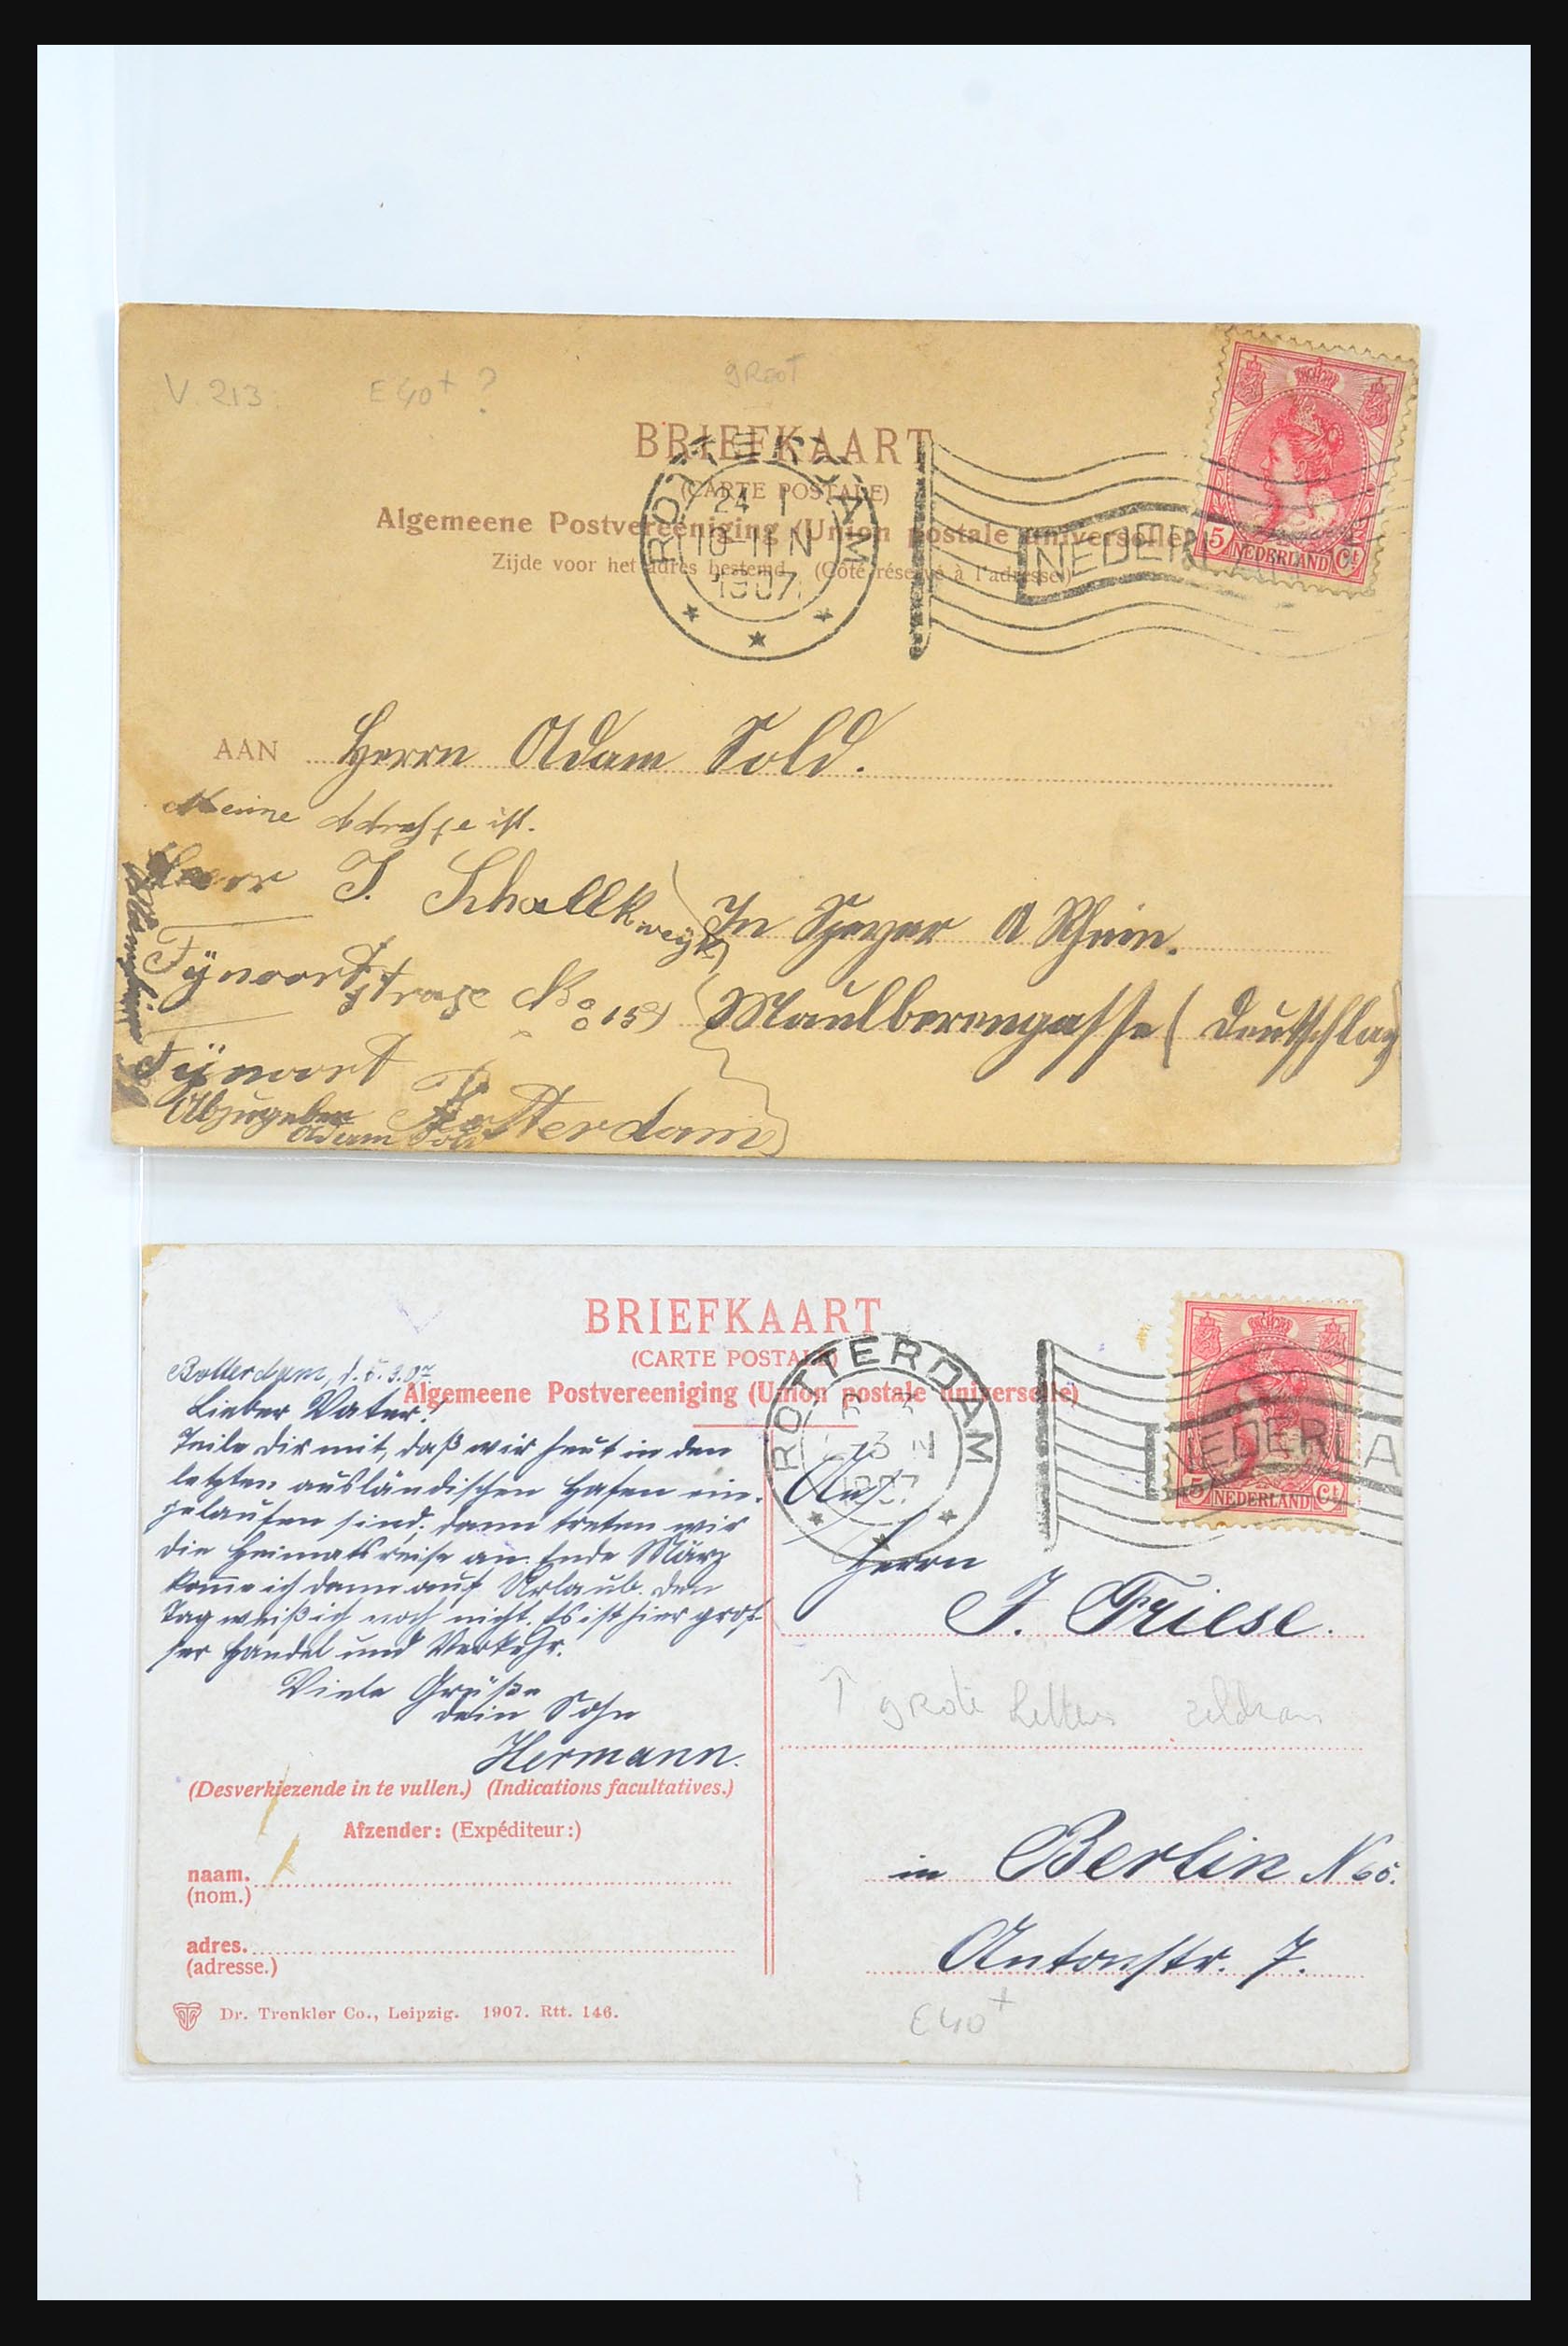 V. 213
E 40+ ?
GROOT
BRIEFKAART
(CARTE POSTALE)
Algemeene Postvereeniging (Union postale universelle)
Zijde voor het adres bestemd. (Côté réservé à l'adresse.)
ROTTERDAM
24 1
10-11 N
1907
NEDERLAND
5 NEDERLAND Ct
AAN Herrn Adam Sold.
Meine Adresse ist.
Herr J. Schallkweyk
In Speyer A Rhein.
Fÿnoortstrase No 15
Maulberengasse (Deutschland)
Fÿnoort
Rotterdam
Abzugeben
Adam Sold
BRIEFKAART
(CARTE POSTALE)
Algemeene Postvereeniging (Union postale universelle)
ROTTERDAM
3 N
1907
NEDERLA
5 NEDERLAND Ct
Rotterdam, d. 5.3.07.
Lieber Vater!
Teile dir mit, daß wir heut in den
letzten ausländischen Hafen ein-
gelaufen sind; dann treten wir
die Heimatsreise an. Ende März
komme ich dann auf Urlaub. Den
Tag weiß ich noch nicht. Es ist hier gros-
ser Handel und Verkehr.
Viele Grüße
dein Sohn
Hermann.
An
Herrn
J. Friese.
↑ grote letters zeldzaam
in Berlin N 65.
Antonstr. 7.
E 40+
(Desverkiezende in te vullen.) (Indications facultatives.)
Afzender: (Expéditeur:)
naam.
(nom.)
adres.
(adresse.)
Dr. Trenkler Co., Leipzig. 1907. Rtt. 146.